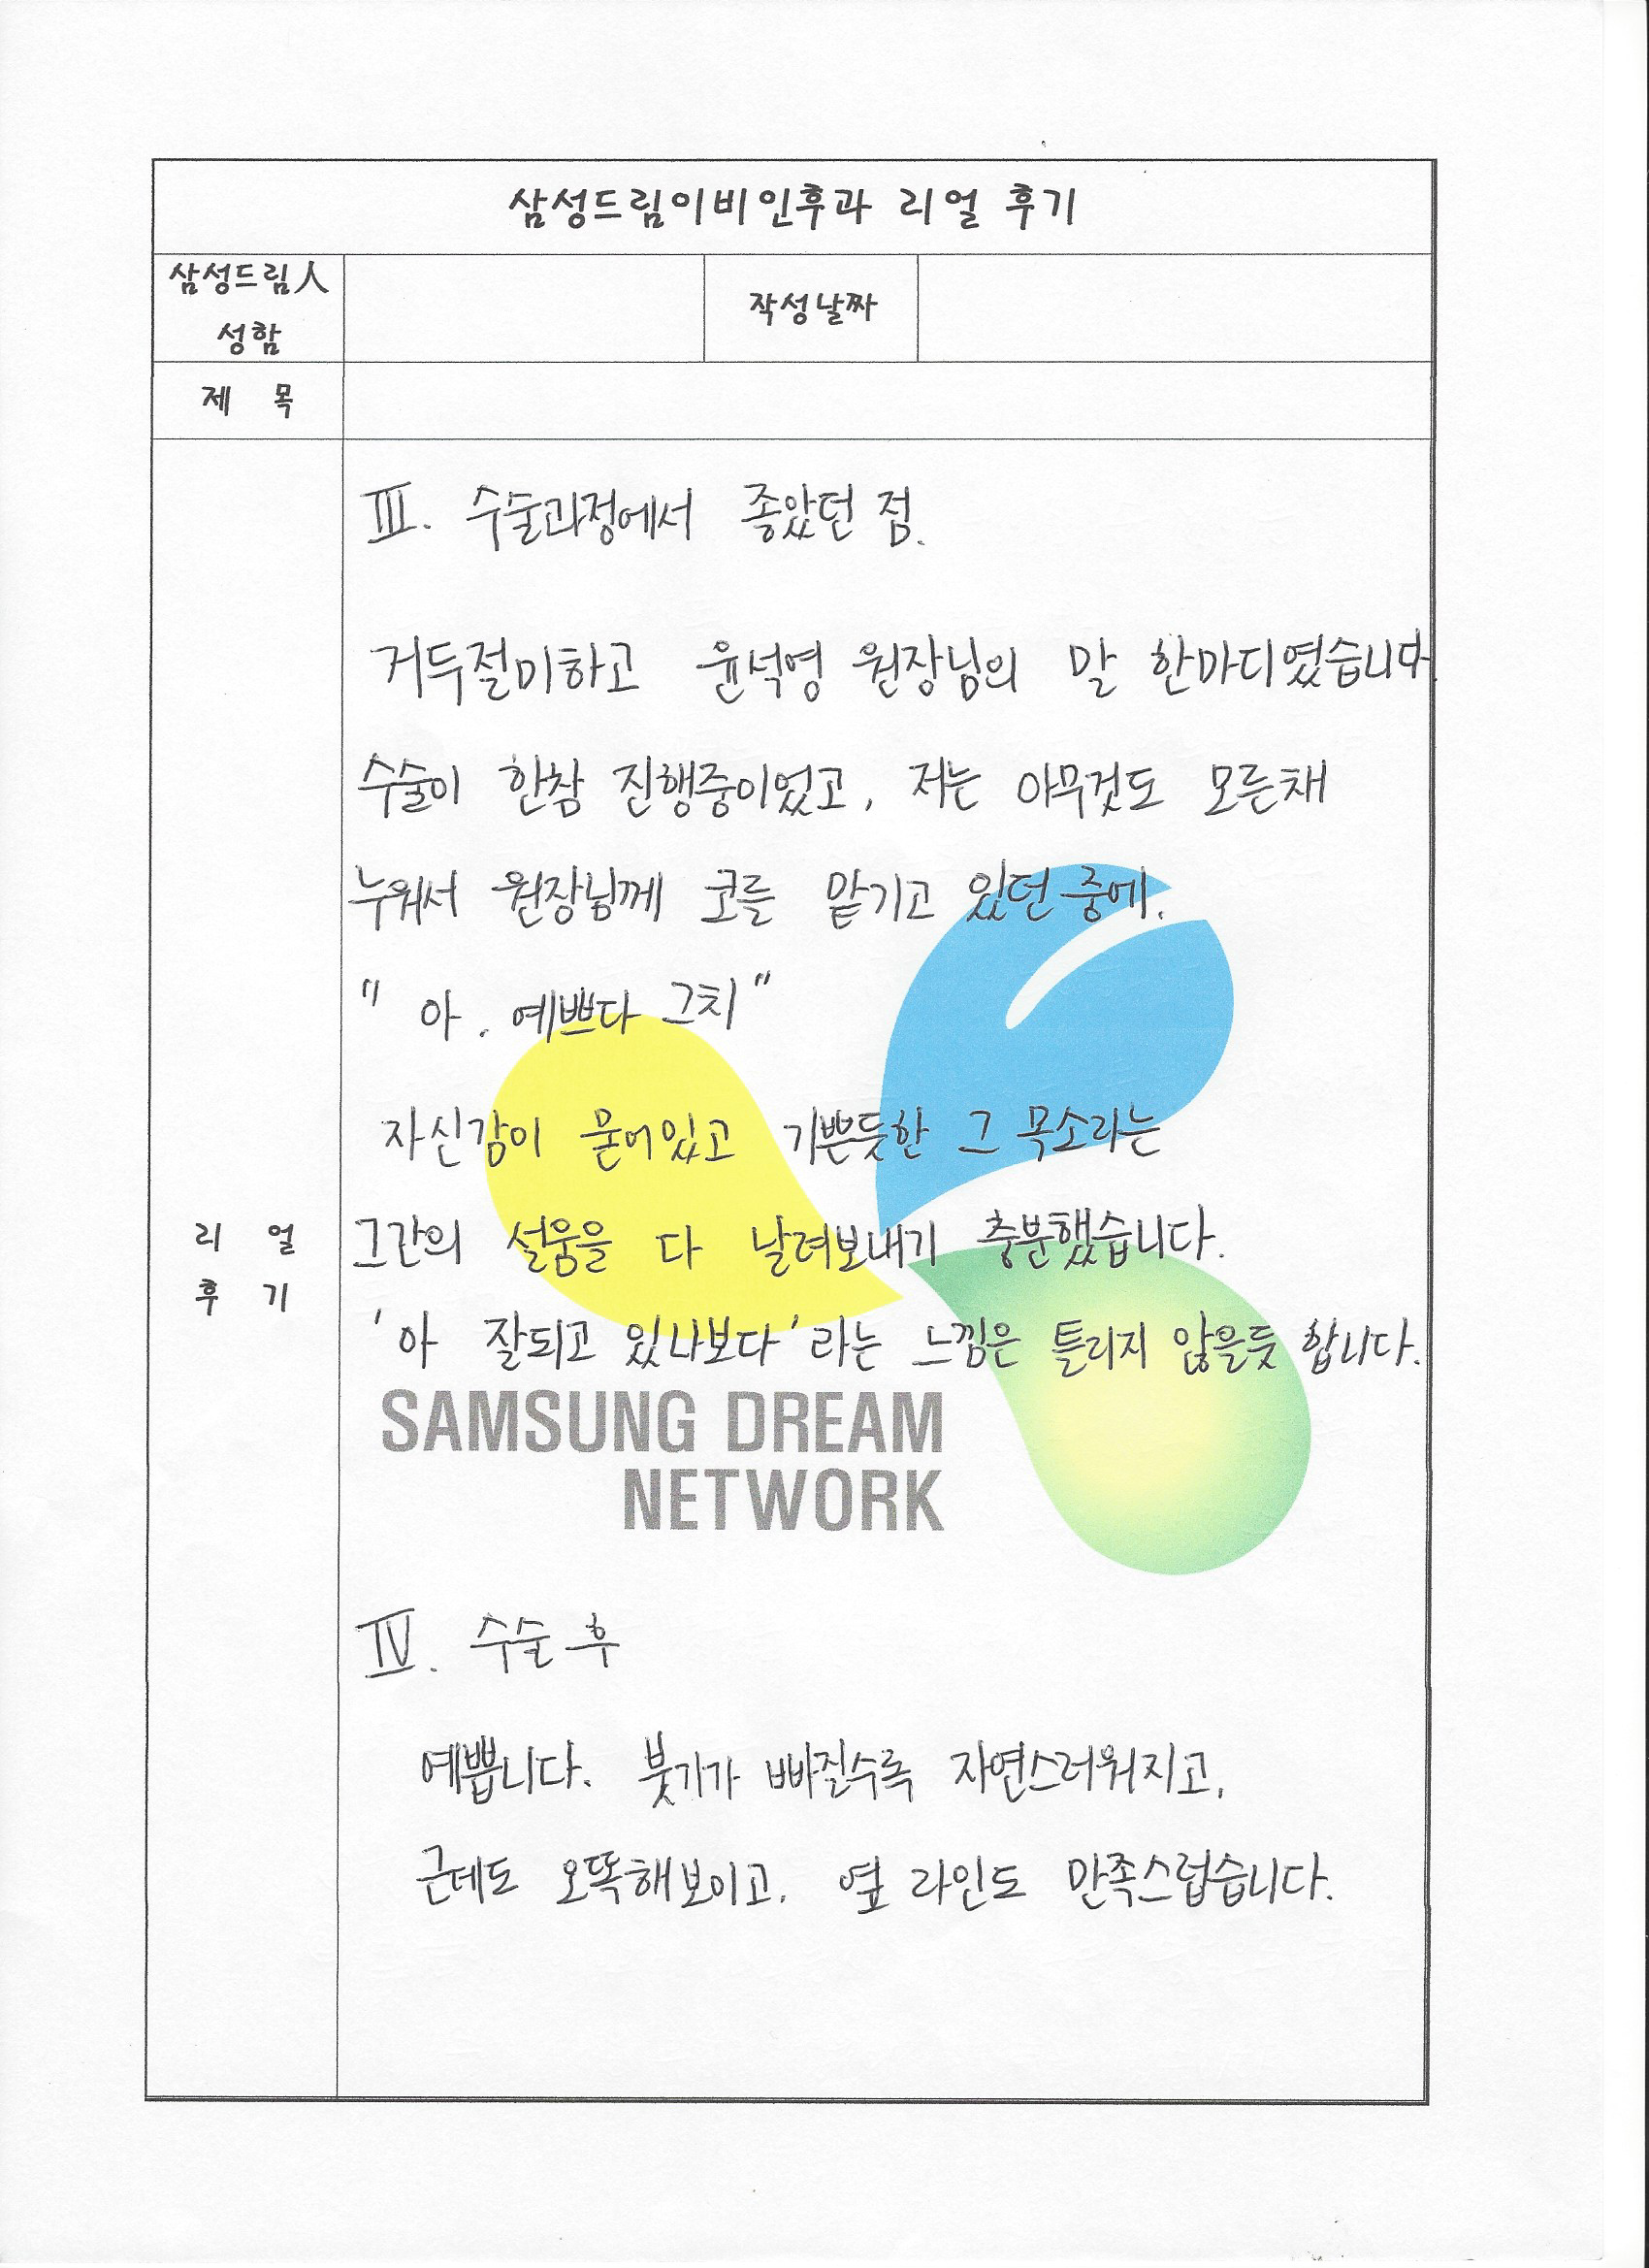 삼성드림이비인후과 리얼 후기
삼성드림人
성함
작성날짜
제 목
Ⅲ. 수술과정에서 좋았던 점.
거두절미하고 윤석영 원장님의 말 한마디였습니다
수술이 한참 진행중이었고, 저는 아무것도 모른채
누워서 원장님께 코를 맡기고 있던 중에.
" 아. 예쁘다 그치"
자신감이 묻어있고 기쁜듯한 그 목소라는
그간의 설움을 다 날려보내기 충분했습니다.
'아 잘되고 있나보다' 라는 느낌은 틀리지 않을듯 합니다.
리 얼
후 기
SAMSUNG DREAM
NETWORK
Ⅳ. 수술 후
예쁩니다. 붓기가 빠질수록 자연스러워지고,
근데도 오똑해보이고, 옆 라인도 만족스럽습니다.